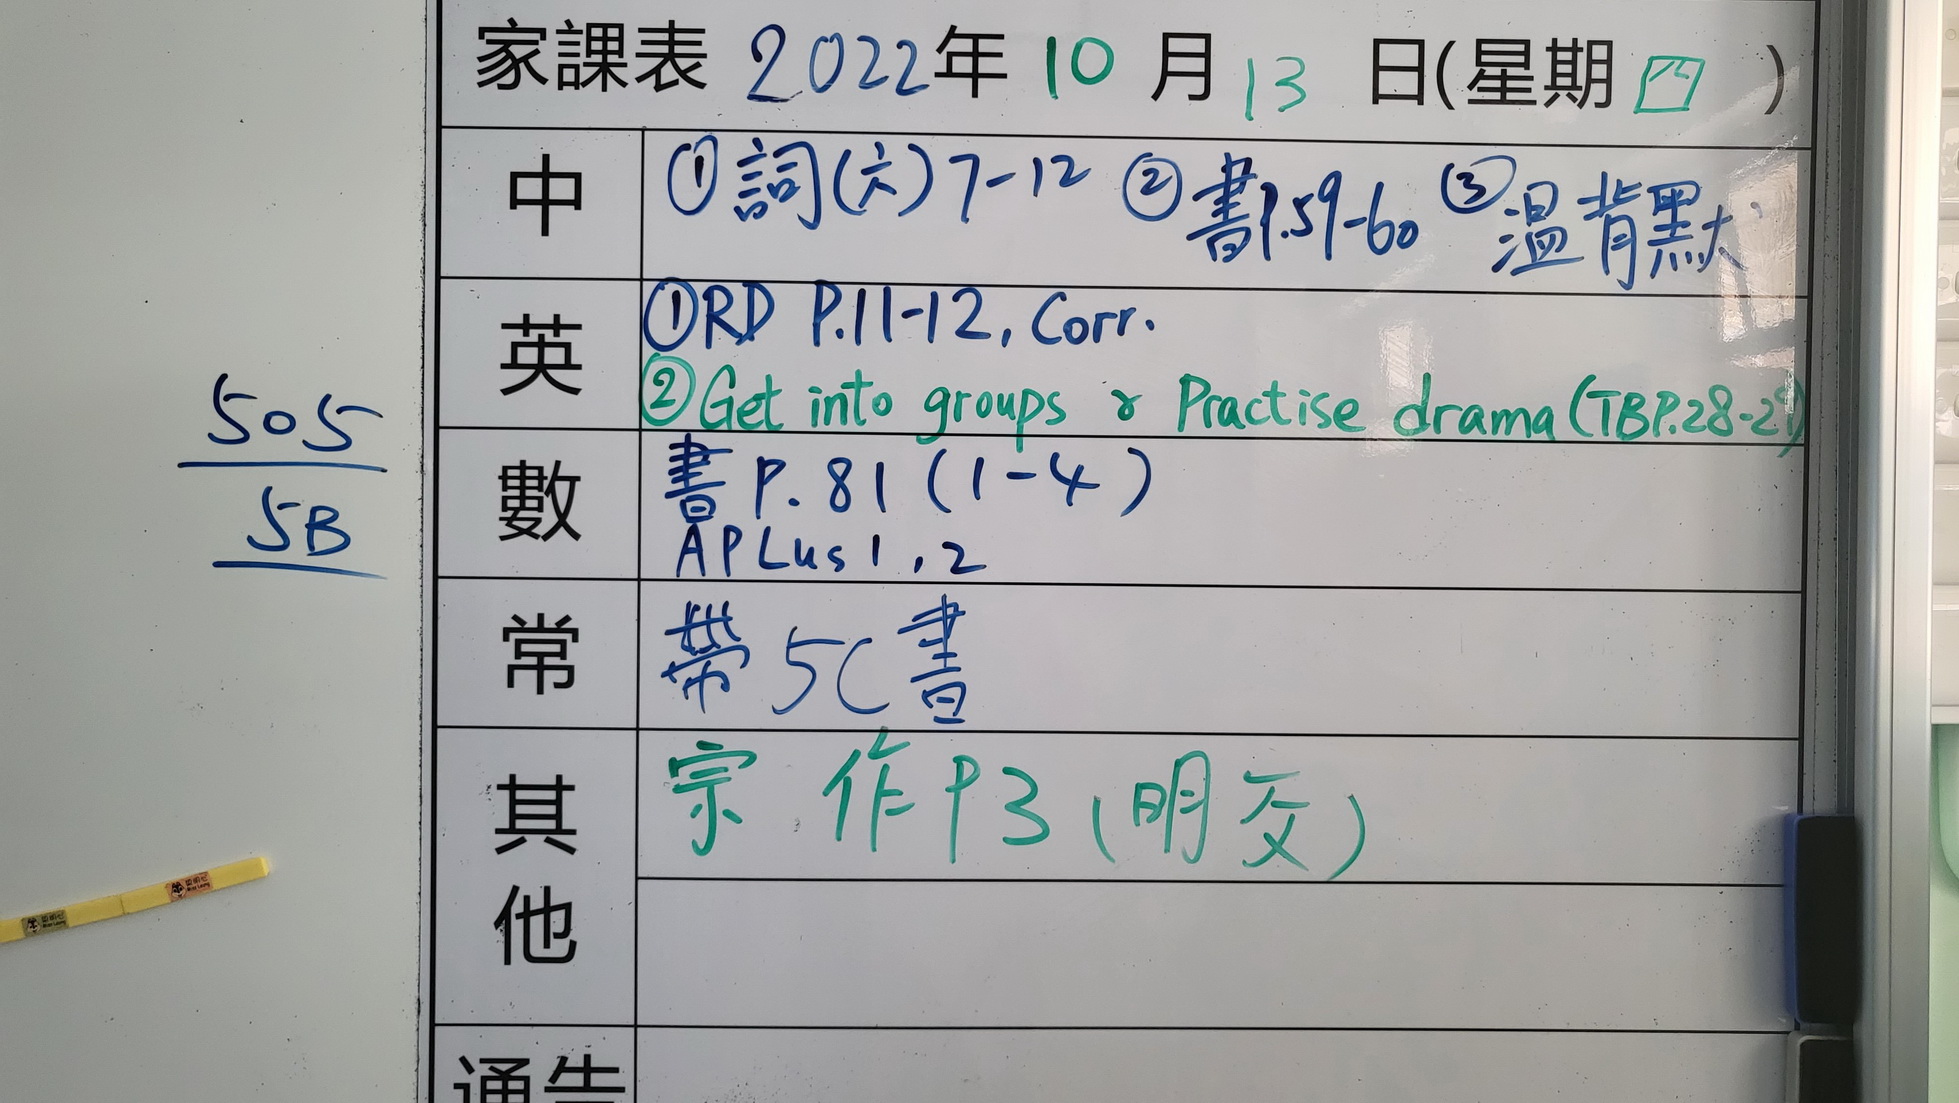 家課表 2022年 10 月 13 日(星期 四 )
中 ①詞(六)7-12 ②書P.59-60 ③温背默
英 ①RD P.11-12, Corr.
②Get into groups & Practise drama (TBP.28-29)
505
數 書 P. 81 (1-4)
APLus 1, 2
5B
常 帶 5C書
其他 宗 作P3 (明交)
通告